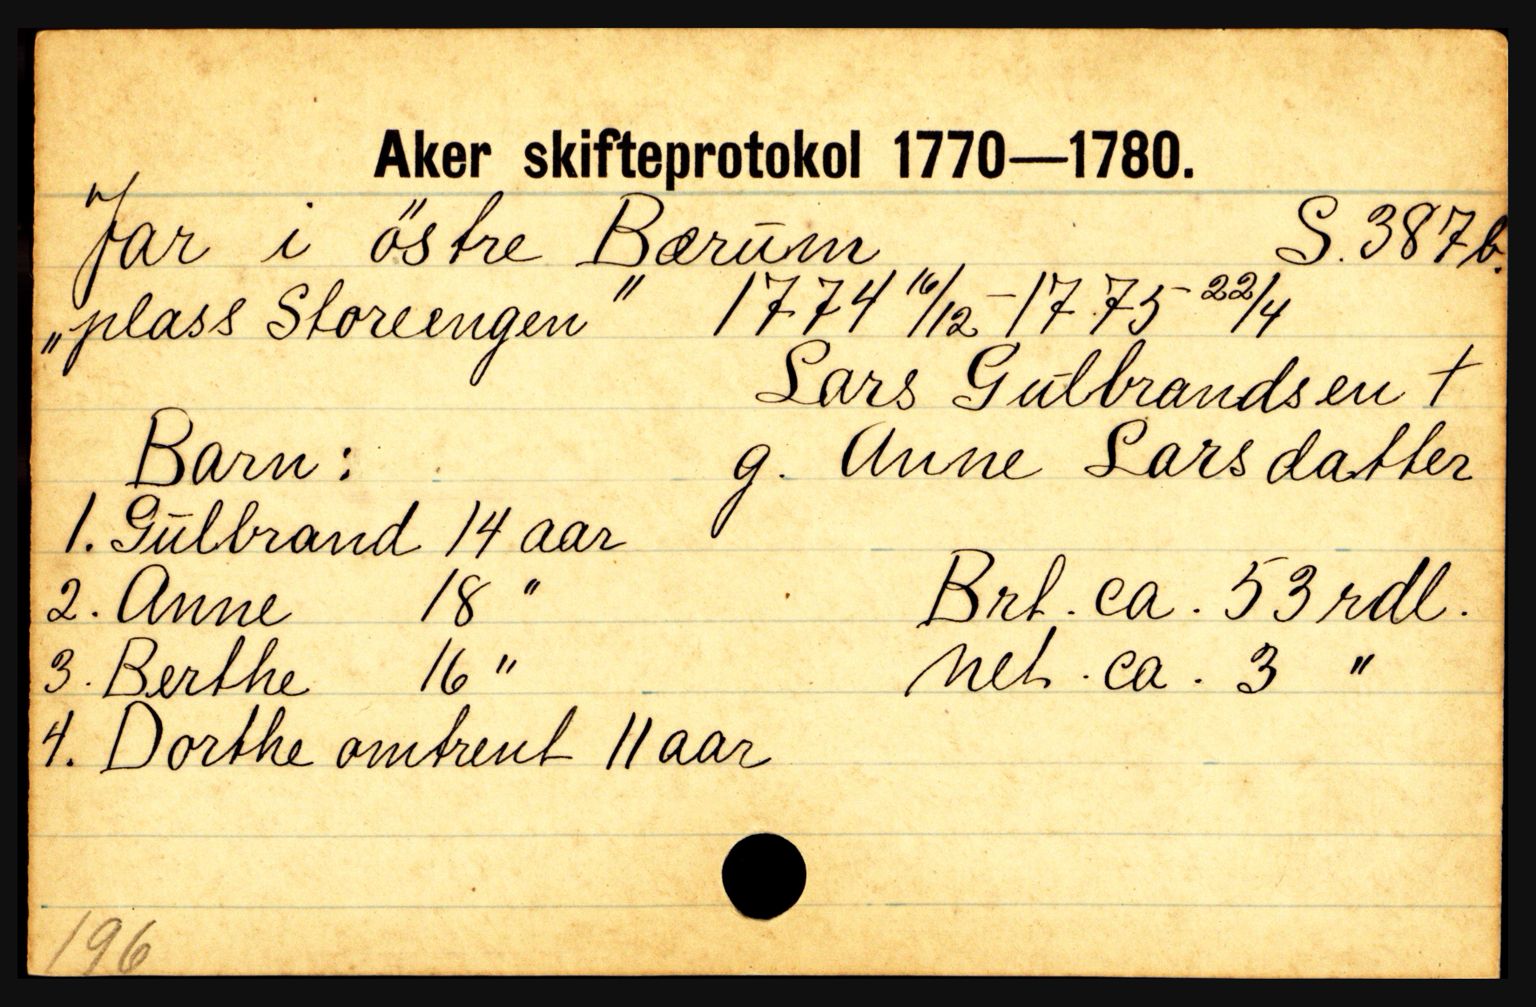 Aker skifteprotokol 1770—1780.
Jar i östre Bærum S. 387b.
„plass Storeengen" 1774 16/12 - 1775 - 22/4
Lars Gulbrandsen †
Barn: g. Anne Larsdatter
1. Gulbrand 14 aar
2. Anne 18 " Brt. ca. 53 rdl.
3. Berthe 16 " net. ca. 3 "
4. Dorthe omtrent 11 aar
196